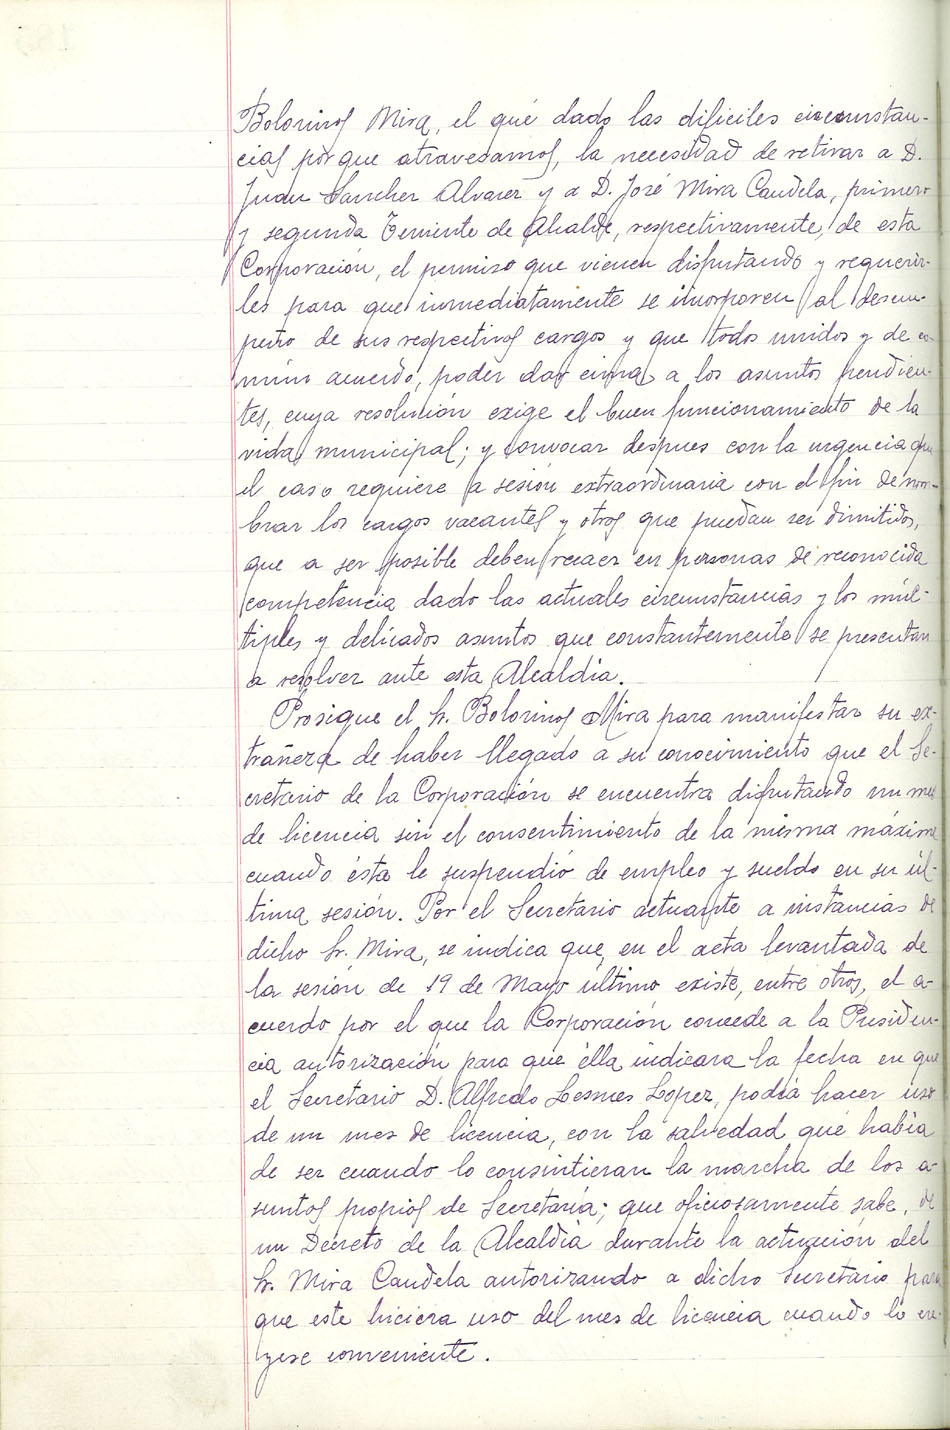 Bolorinos Mira, el que dado las dificiles circunstan-
cias porque atravesamos, la necesidad de retirar a D.
Juan Sanchez Alvarez y a D. José Mira Candela, primero
y segunda Teniente de Alcalde, respectivamente, de esta
Corporación, el permiso que vienen disfrutando y requerir-
les para que inmediatamente se incorporen al desem-
peño de sus respectivos cargos y que todos unidos y de co-
mún acuerdo, poder dar cima a los asuntos pendien-
tes, cuya resolución exige el buen funcionamiento de la
vida municipal; y convocar despues con la urgencia que
el caso requiere a sesión extraordinaria con el fin de nom-
brar los cargos vacantes y otros que puedan ser dimitidos,
que a ser posible deben recaer en personas de reconocida
competencia dado las actuales circunstancias y los múl-
tiples y delicados asuntos que constantemente se presentan
a resolver ante esta Alcaldía.
Prosigue el Sr. Bolorinos Mira para manifestar su ex-
trañeza de haber llegado a su conocimiento que el Se-
cretario de la Corporación se encuentra disfrutando un mes
de licencia sin el consentimiento de la misma máxime
cuando ésta le suspendió de empleo y sueldo en su úl-
tima sesión. Por el Secretario actuante a instancias de
dicho Sr. Mira, se indica que, en el acta levantada de
la sesión de 19 de Mayo último existe, entre otros, el a-
cuerdo por el que la Corporación concede a la Presiden-
cia autorización para que élla indicara la fecha en que
el Secretario D. Alfredo Lesmes Lopez, podía hacer uso
de un mes de licencia, con la salvedad que había
de ser cuando lo consintieran la marcha de los a-
suntos propios de Secretaría; que oficiosamente sabe, de
un Decreto de la Alcaldía durante la actuación del
Sr. Mira Candela autorizando a dicho Secretario para
que este hiciera uso del mes de licencia cuando lo cre-
yese conveniente.